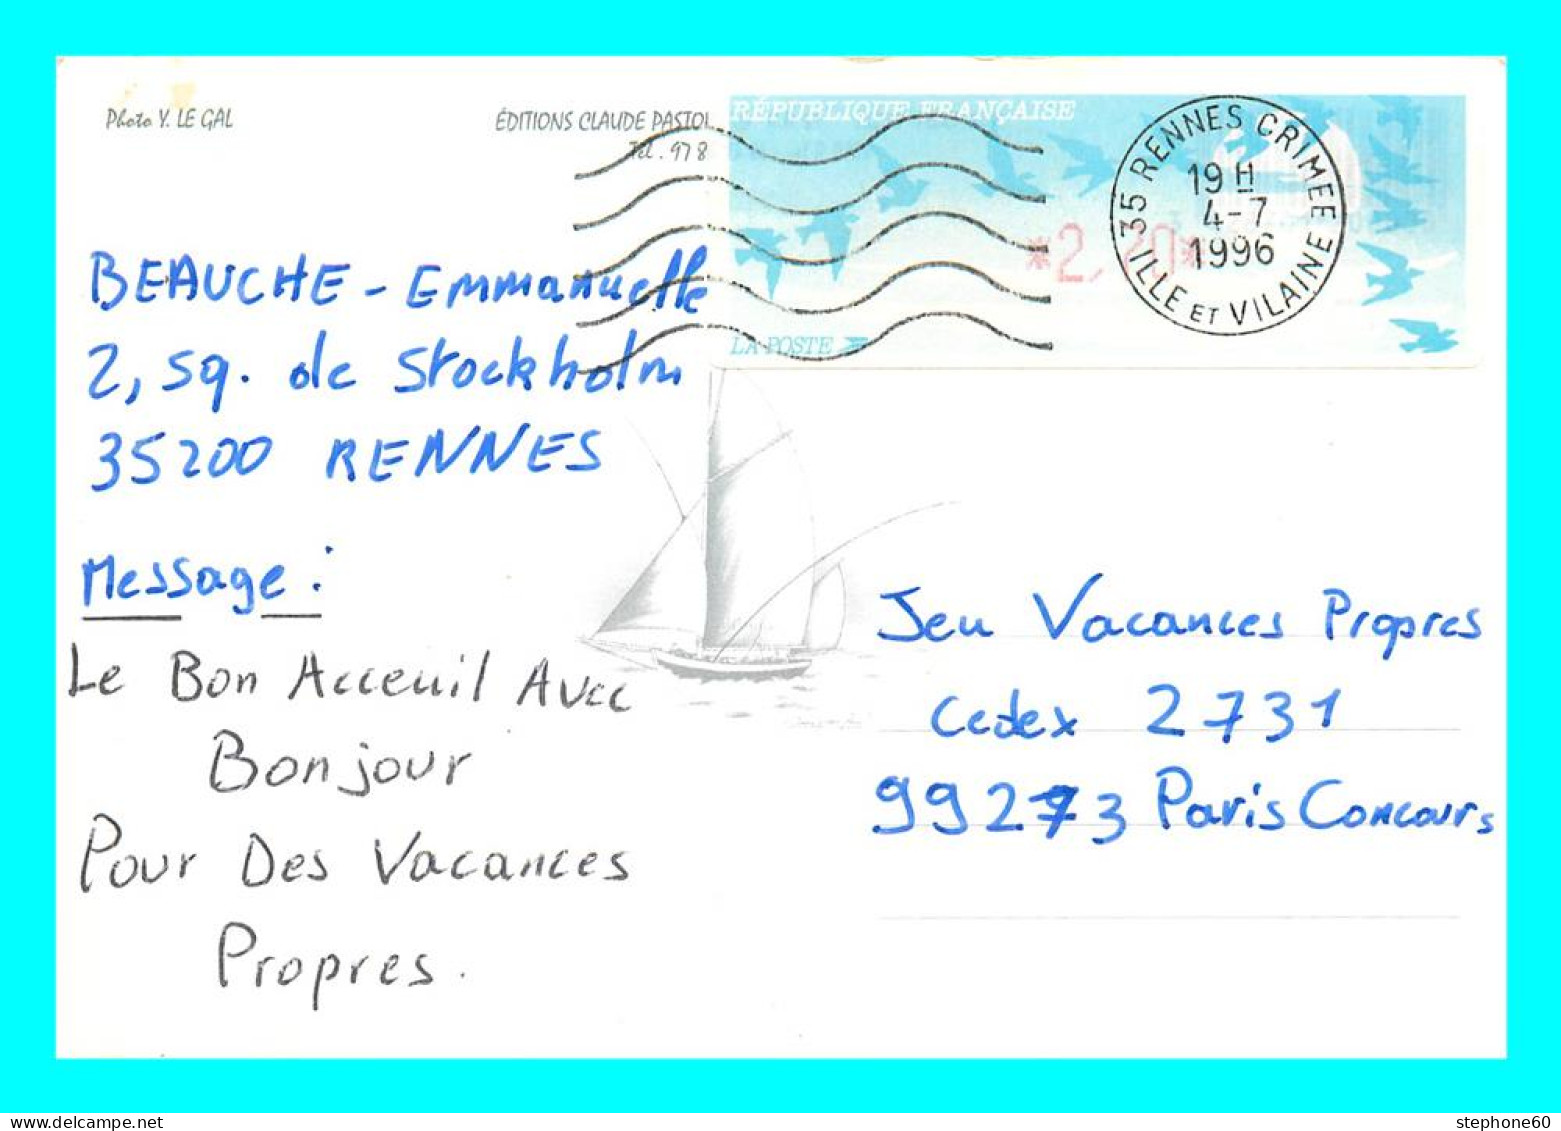 Photo Y. LE GAL
ÉDITIONS CLAUDE PASTOI
Tél. 978
RÉPUBLIQUE FRANÇAISE
*2,20*
LA POSTE
35 RENNES CRIMEE
19 H
4-7
1996
ILLE ET VILAINE
BEAUCHE - Emmanuelle
2, sq. de Stockholm
35200 RENNES
Message :
Le Bon Acceuil Avec
Bonjour
Pour Des Vacances
Propres.
Jeu Vacances Propres
Cedex 2731
99273 Paris Concours
stephone60